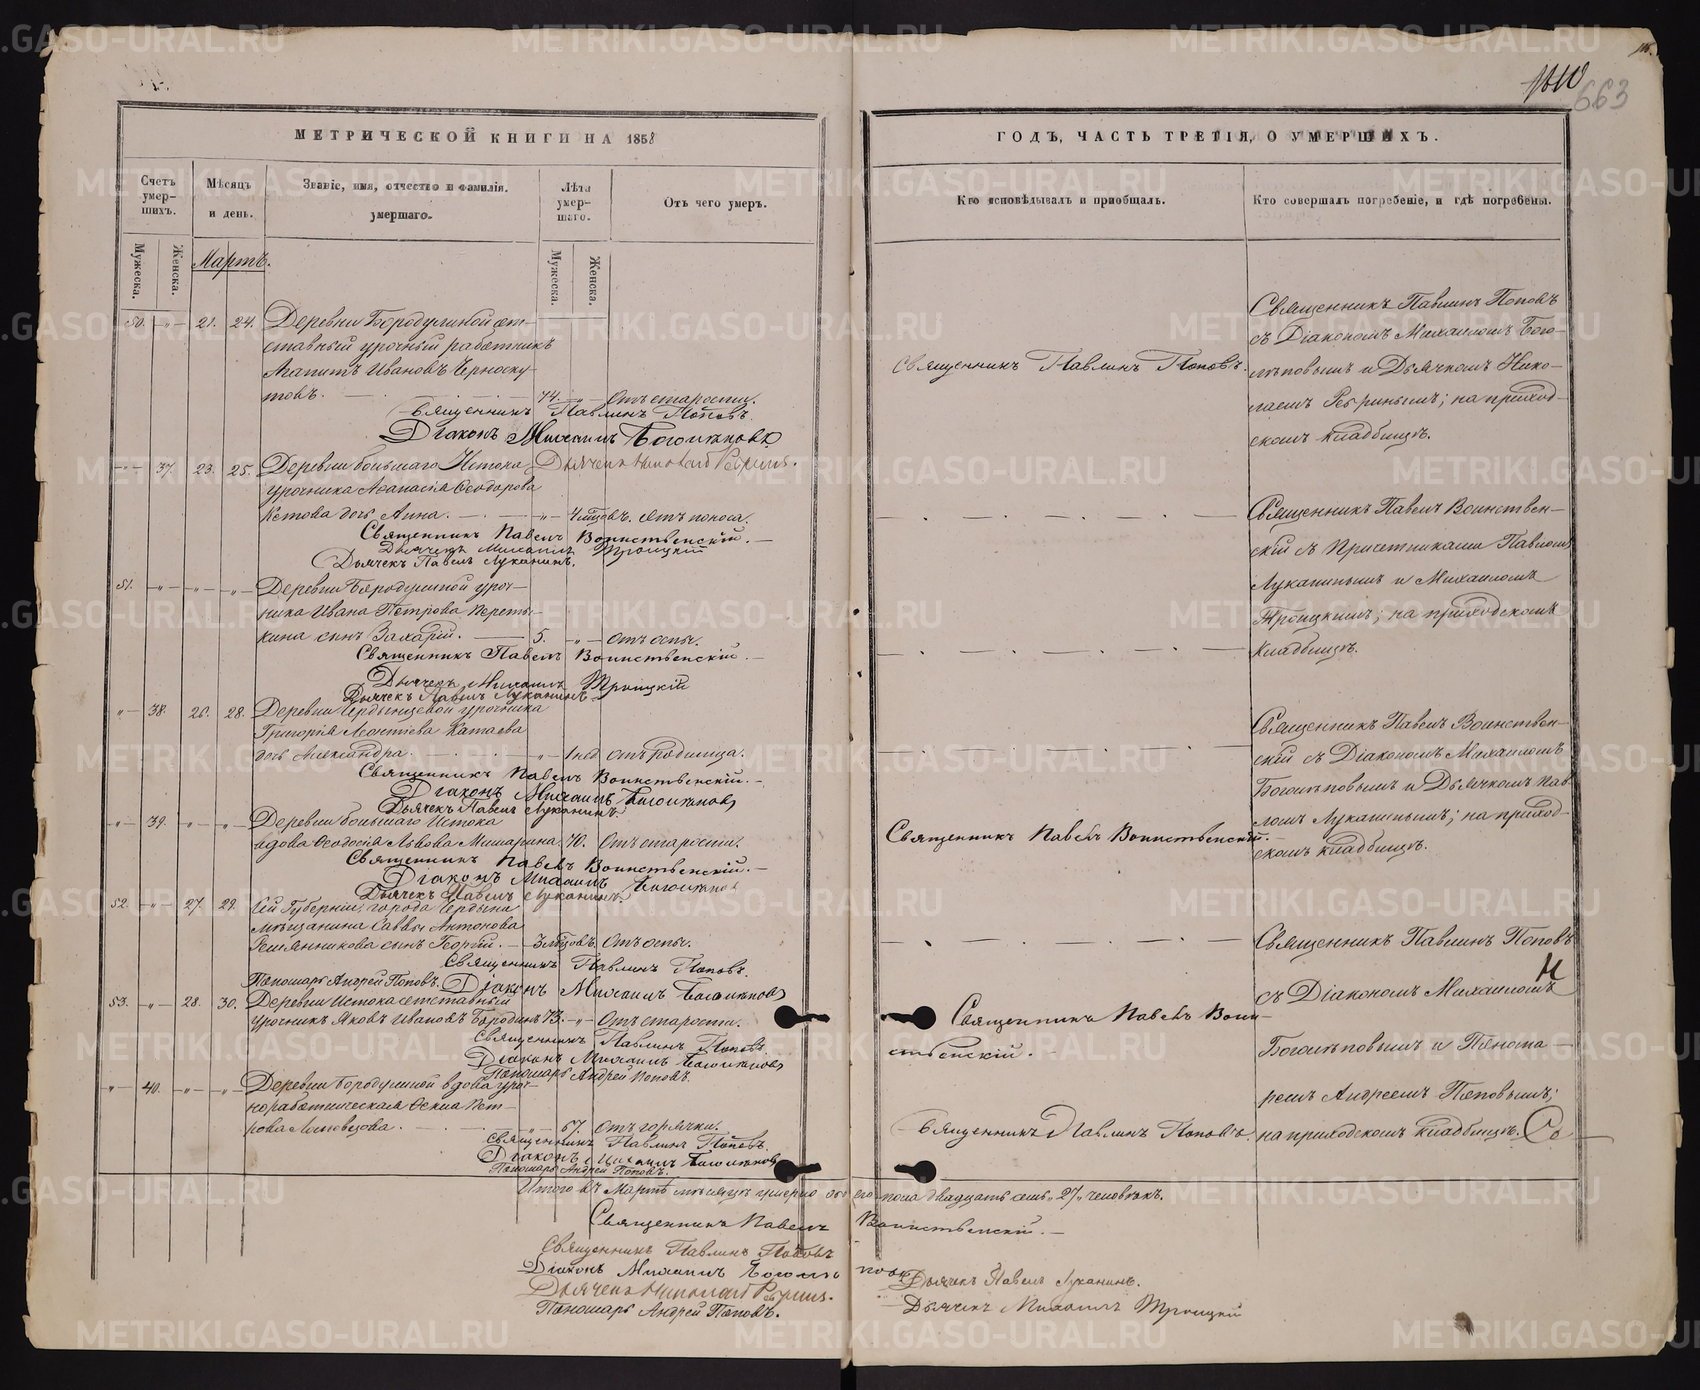 663
МЕТРИЧЕСКОЙ КНИГИ НА 1858
Счетъ умер-шихъ.
Мѣсяцъ и день.
Званіе, имя, отчество и фамилія. умершаго.
Лѣта умер-шаго.
Отъ чего умеръ.
Мужеска.
Женска.
Мужеска.
Женска.
Мартъ.
50. -"- 21. 24. Деревни Бородулиной от-
ставный урочный работникъ
Агапитъ Ивановъ Черноску-
товъ. 74. -"- Отъ старости.
Священникъ Павлинъ Поповъ
Діаконъ Михаилъ Боголѣповъ
-"- 37. 23. 25. Деревни большаго Истока
Дьячекъ Николай Ребринъ.
урочника Аѳанасія Ѳеодорова
Кетова дочь Анна. -"- 4 мѣсцовъ. отъ поноса.
Священникъ Павелъ Воинственскій.
Дьячекъ Михаилъ Троицкій
Дьячекъ Павелъ Луканинъ.
51. -"- -"- -"- Деревни Бородулиной уроч-
ника Ивана Петрова
сынъ Захарій. 5. -"- Отъ оспы.
Священникъ Павелъ Воинственскій.
Дьячекъ Михаилъ Троицкій
Дьячекъ Павелъ Луканинъ
-"- 38. 26. 28. Деревни урочника
Григорія Леонтіева Катаева
дочь Александра. -"- 1 нед отъ родимца.
Священникъ Павелъ Воинственскій.
Діаконъ Михаилъ Боголѣповъ
Дьячекъ Павелъ Луканинъ.
-"- 39. -"- -"- Деревни большаго Истока
вдова Ѳеодосія Львова 70. Отъ старости.
Священникъ Павелъ Воинственскій.
Діаконъ Михаилъ Боголѣповъ
Дьячекъ Павелъ Луканинъ.
52. -"- 27. 29. Сей Губерніи, города
мѣщанина Саввы Антонова
сынъ Георгій. 3 мѣсцовъ. Отъ оспы.
Священникъ Павлинъ Поповъ.
Пономарь Андрей Поповъ. Діаконъ Михаилъ Боголѣповъ
53. -"- 28. 30. Деревни Истока отставный
урочникъ Яковъ Ивановъ Бородинъ 73. -"- Отъ старости.
Священникъ Павлинъ Поповъ
Діаконъ Михаилъ Боголѣповъ
Пономарь Андрей Поповъ.
-"- 40. -"- -"- Деревни Бородулиной вдова уроч-
норабочническая Пет-
рова -"- 67. отъ горячки.
Священникъ Павлинъ Поповъ.
Діаконъ Михаилъ Боголѣповъ
Пономарь Андрей Поповъ.
Итого въ Мартѣ мѣсяцѣ умерло обоего пола двадцать семь "27" человѣкъ.
Священникъ Павелъ Воинственскій.
Священникъ Павлинъ Поповъ
Діаконъ Михаилъ Боголѣповъ
Дьячекъ Николай Ребринъ.
Пономарь Андрей Поповъ.
Дьячекъ Павелъ Луканинъ.
Дьячекъ Михаилъ Троицкій
ГОДЪ, ЧАСТЬ ТРЕТІЯ, О УМЕРШИХЪ.
Кто исповѣдывалъ и пріобщалъ.
Кто совершалъ погребеніе, и гдѣ погребены.
Священникъ Павлинъ Поповъ.
Священникъ Павелъ Воинственскій.
Священникъ Павелъ Воин-
ственскій.
Священникъ Павлинъ Поповъ.
Священникъ Павлинъ Поповъ
съ Діакономъ Михаиломъ Бого-
лѣповымъ и Дьячкомъ Нико-
лаемъ Ребринымъ; на приход-
скомъ кладбищѣ.
Священникъ Павелъ Воинствен-
скій съ Причетниками Павломъ
Луканинымъ и Михаиломъ
Троицкимъ; на приходскомъ
кладбищѣ.
Священникъ Павелъ Воинствен-
скій съ Діакономъ Михаиломъ
Боголѣповымъ и Дьячкомъ Пав-
ломъ Луканинымъ; на приход-
скомъ кладбищѣ.
Священникъ Павлинъ Поповъ
съ Діакономъ Михаиломъ
Боголѣповымъ и Понома-
ремъ Андреемъ Поповымъ;
на приходскомъ кладбищѣ.
METRIKI.GASO-URAL.RU